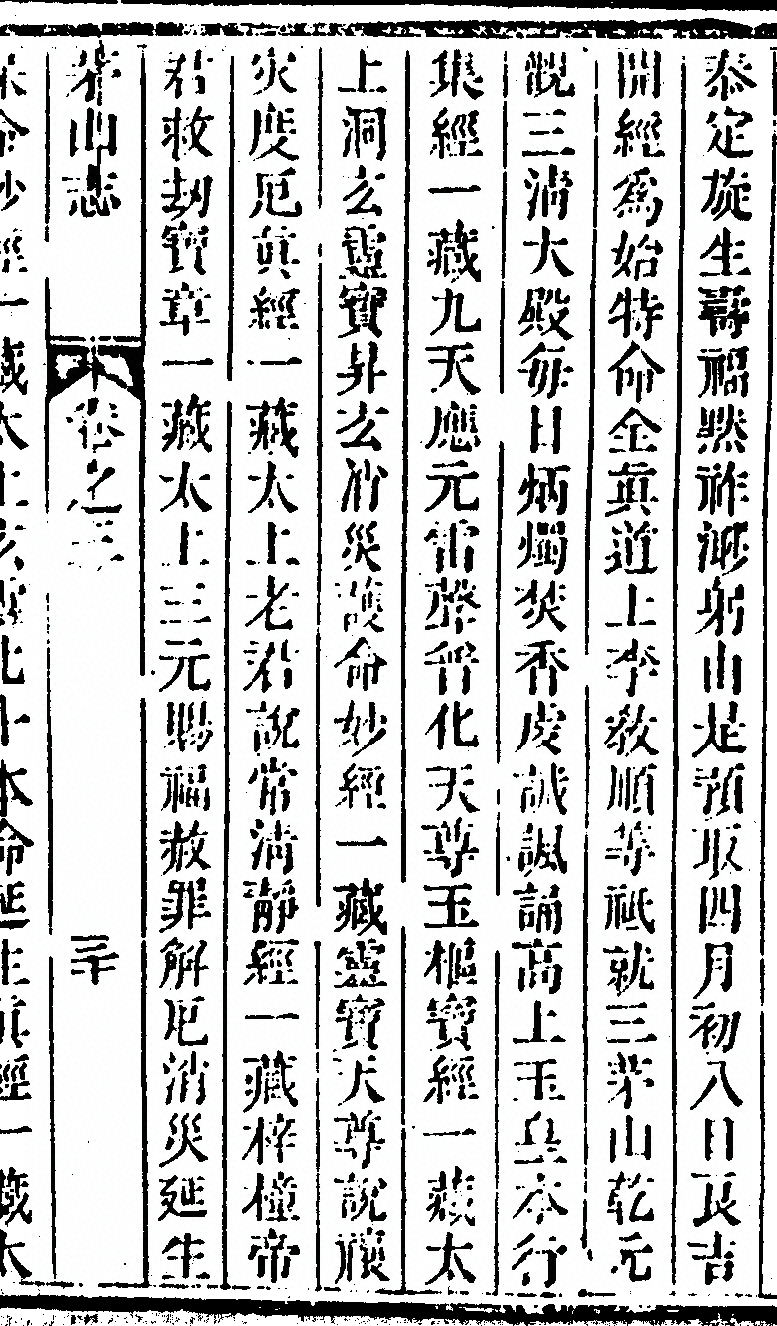 泰定旋生壽福黙祚渺躬由是預取四月初八日良吉
開經爲始特命全眞道士李教順等祗就三茅山乾元
觀三清大殿每日炳燭焚香虔誠諷誦高上玉皇本行
集經一藏九天應元雷聲普化天尊玉樞寶經一藏太
上洞玄靈寶昇玄消災護命妙經一藏靈寶天尊說禳
災度厄眞經一藏太上老君說常清靜經一藏梓橦帝
君救劫寶章一藏太上三元賜福赦罪解厄消災延生
茅山志 卷之三 三十
保命妙經一藏太上玄靈北斗本命延生眞經一藏太